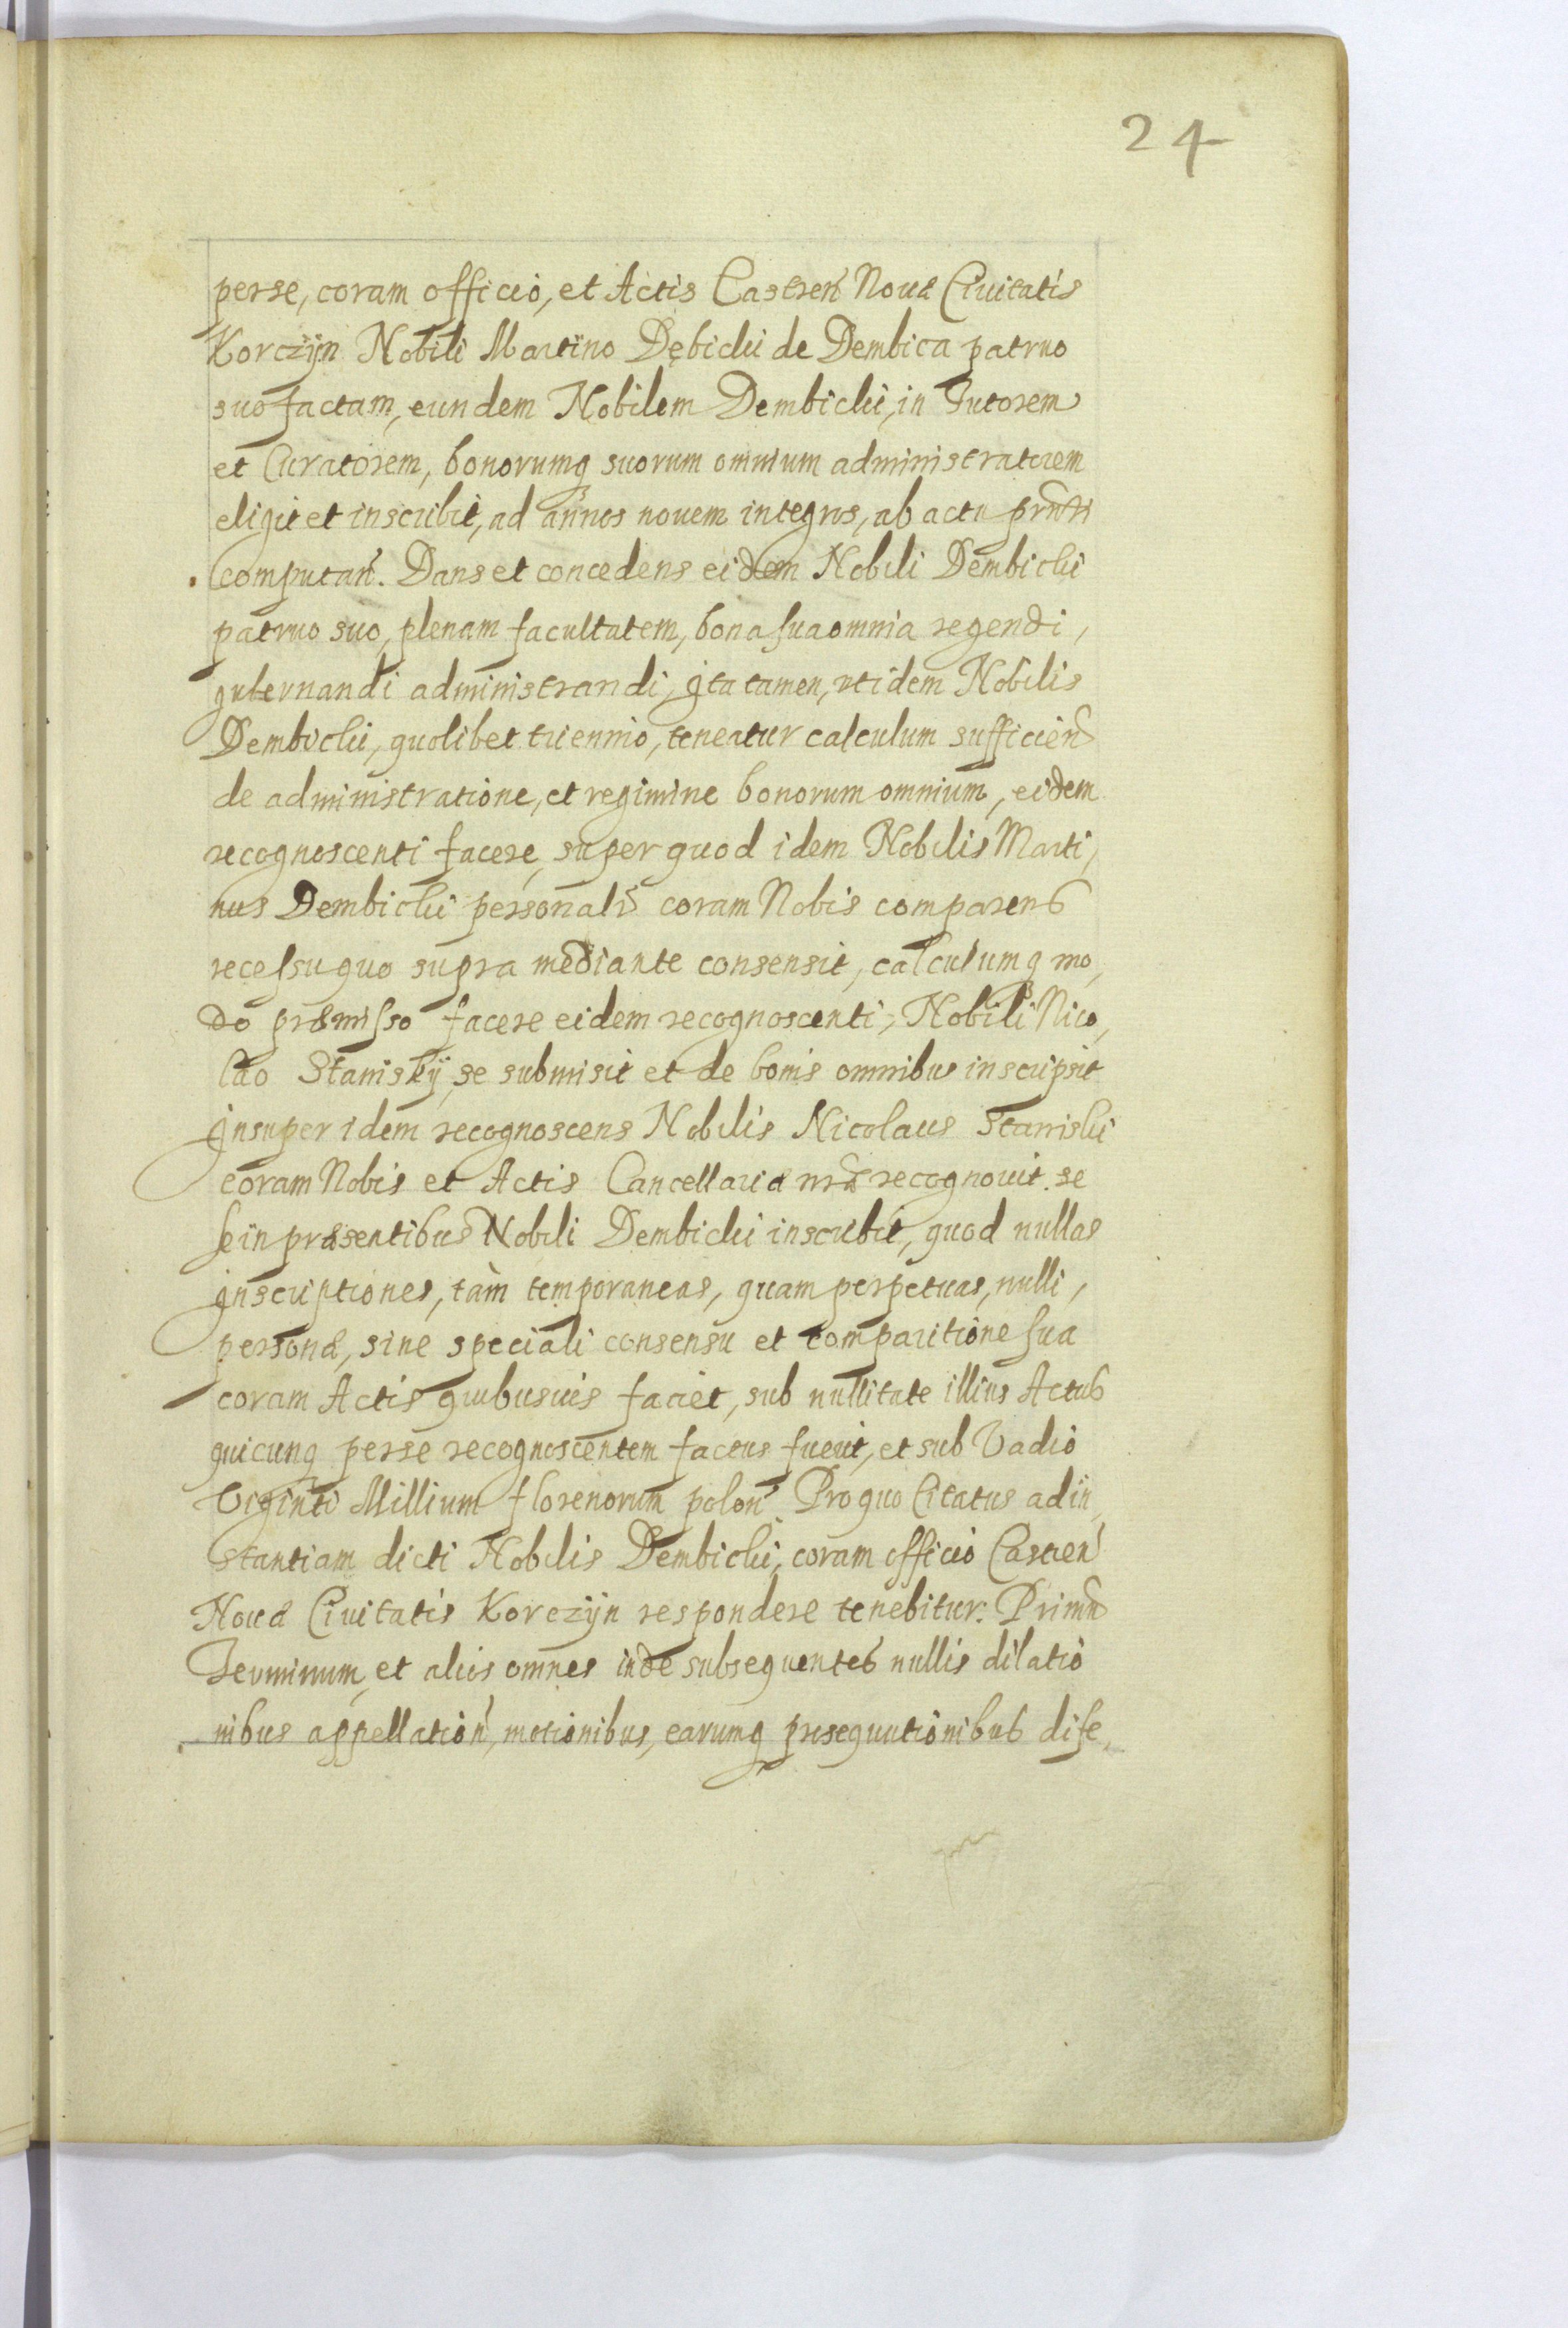 24
perse, coram officio, et Actis Castren̄ Nouæ Ciuitatis
Korczÿn Nobili Martino Dębicki de Dembica patruo
suo factam, eundem Nobilem Dembicki, in Tutorem
et Curatorem, bonorumq suorum omnium administratorem
eligit et inscribit, ad annos nouem integros, ab actu prnti
computan̄. Dans et concedens eidem Nobili Dembicki
patruo suo, plenam facultatem, bona sua omnia regendi,
gubernandi administrandi, jta tamen, vt idem Nobilis
Dembicki, quolibet triennio, teneatur calculum sufficien̄
de administratione, et regimine bonorum omnium, eidem
recognoscenti facere, super quod idem Nobilis Marti,
nus Dembicki personalr coram Nobis comparens
recessu quo supra mediante consensit, calculumq mo,
do præmisso facere eidem recognoscenti, Nobili Nico,
lao Stanisky, se submisit et de bonis omnibus inscripsit
jnsuper idem recognoscens Nobilis Nicolaus Staniski
coram Nobis et Actis Cancellariæ nræ recognouit se
se in præsentibus Nobili Dembicki inscribit, quod nullas
jnscriptiones, tàm temporaneas, quam perpetuas, nulli,
personæ, sine speciali consensu et comparitione sua
coram Actis quibusuis faciet, sub nullitate illius Actus
quicunq perse recognoscentem factus fuerit, et sub Vadio
Viginti Millium florenorum polon̄. Pro quo Citatus ad in,
stantiam dicti Nobilis Dembicki, coram officio Castren̄
Nouæ Ciuitatis Korczÿn respondere tenebitur. Primū
Terminum, et alios omnes inde subsequentes nullis dilatio
nibus appellation̄, motionibus, earumq prosequutionibus dife,